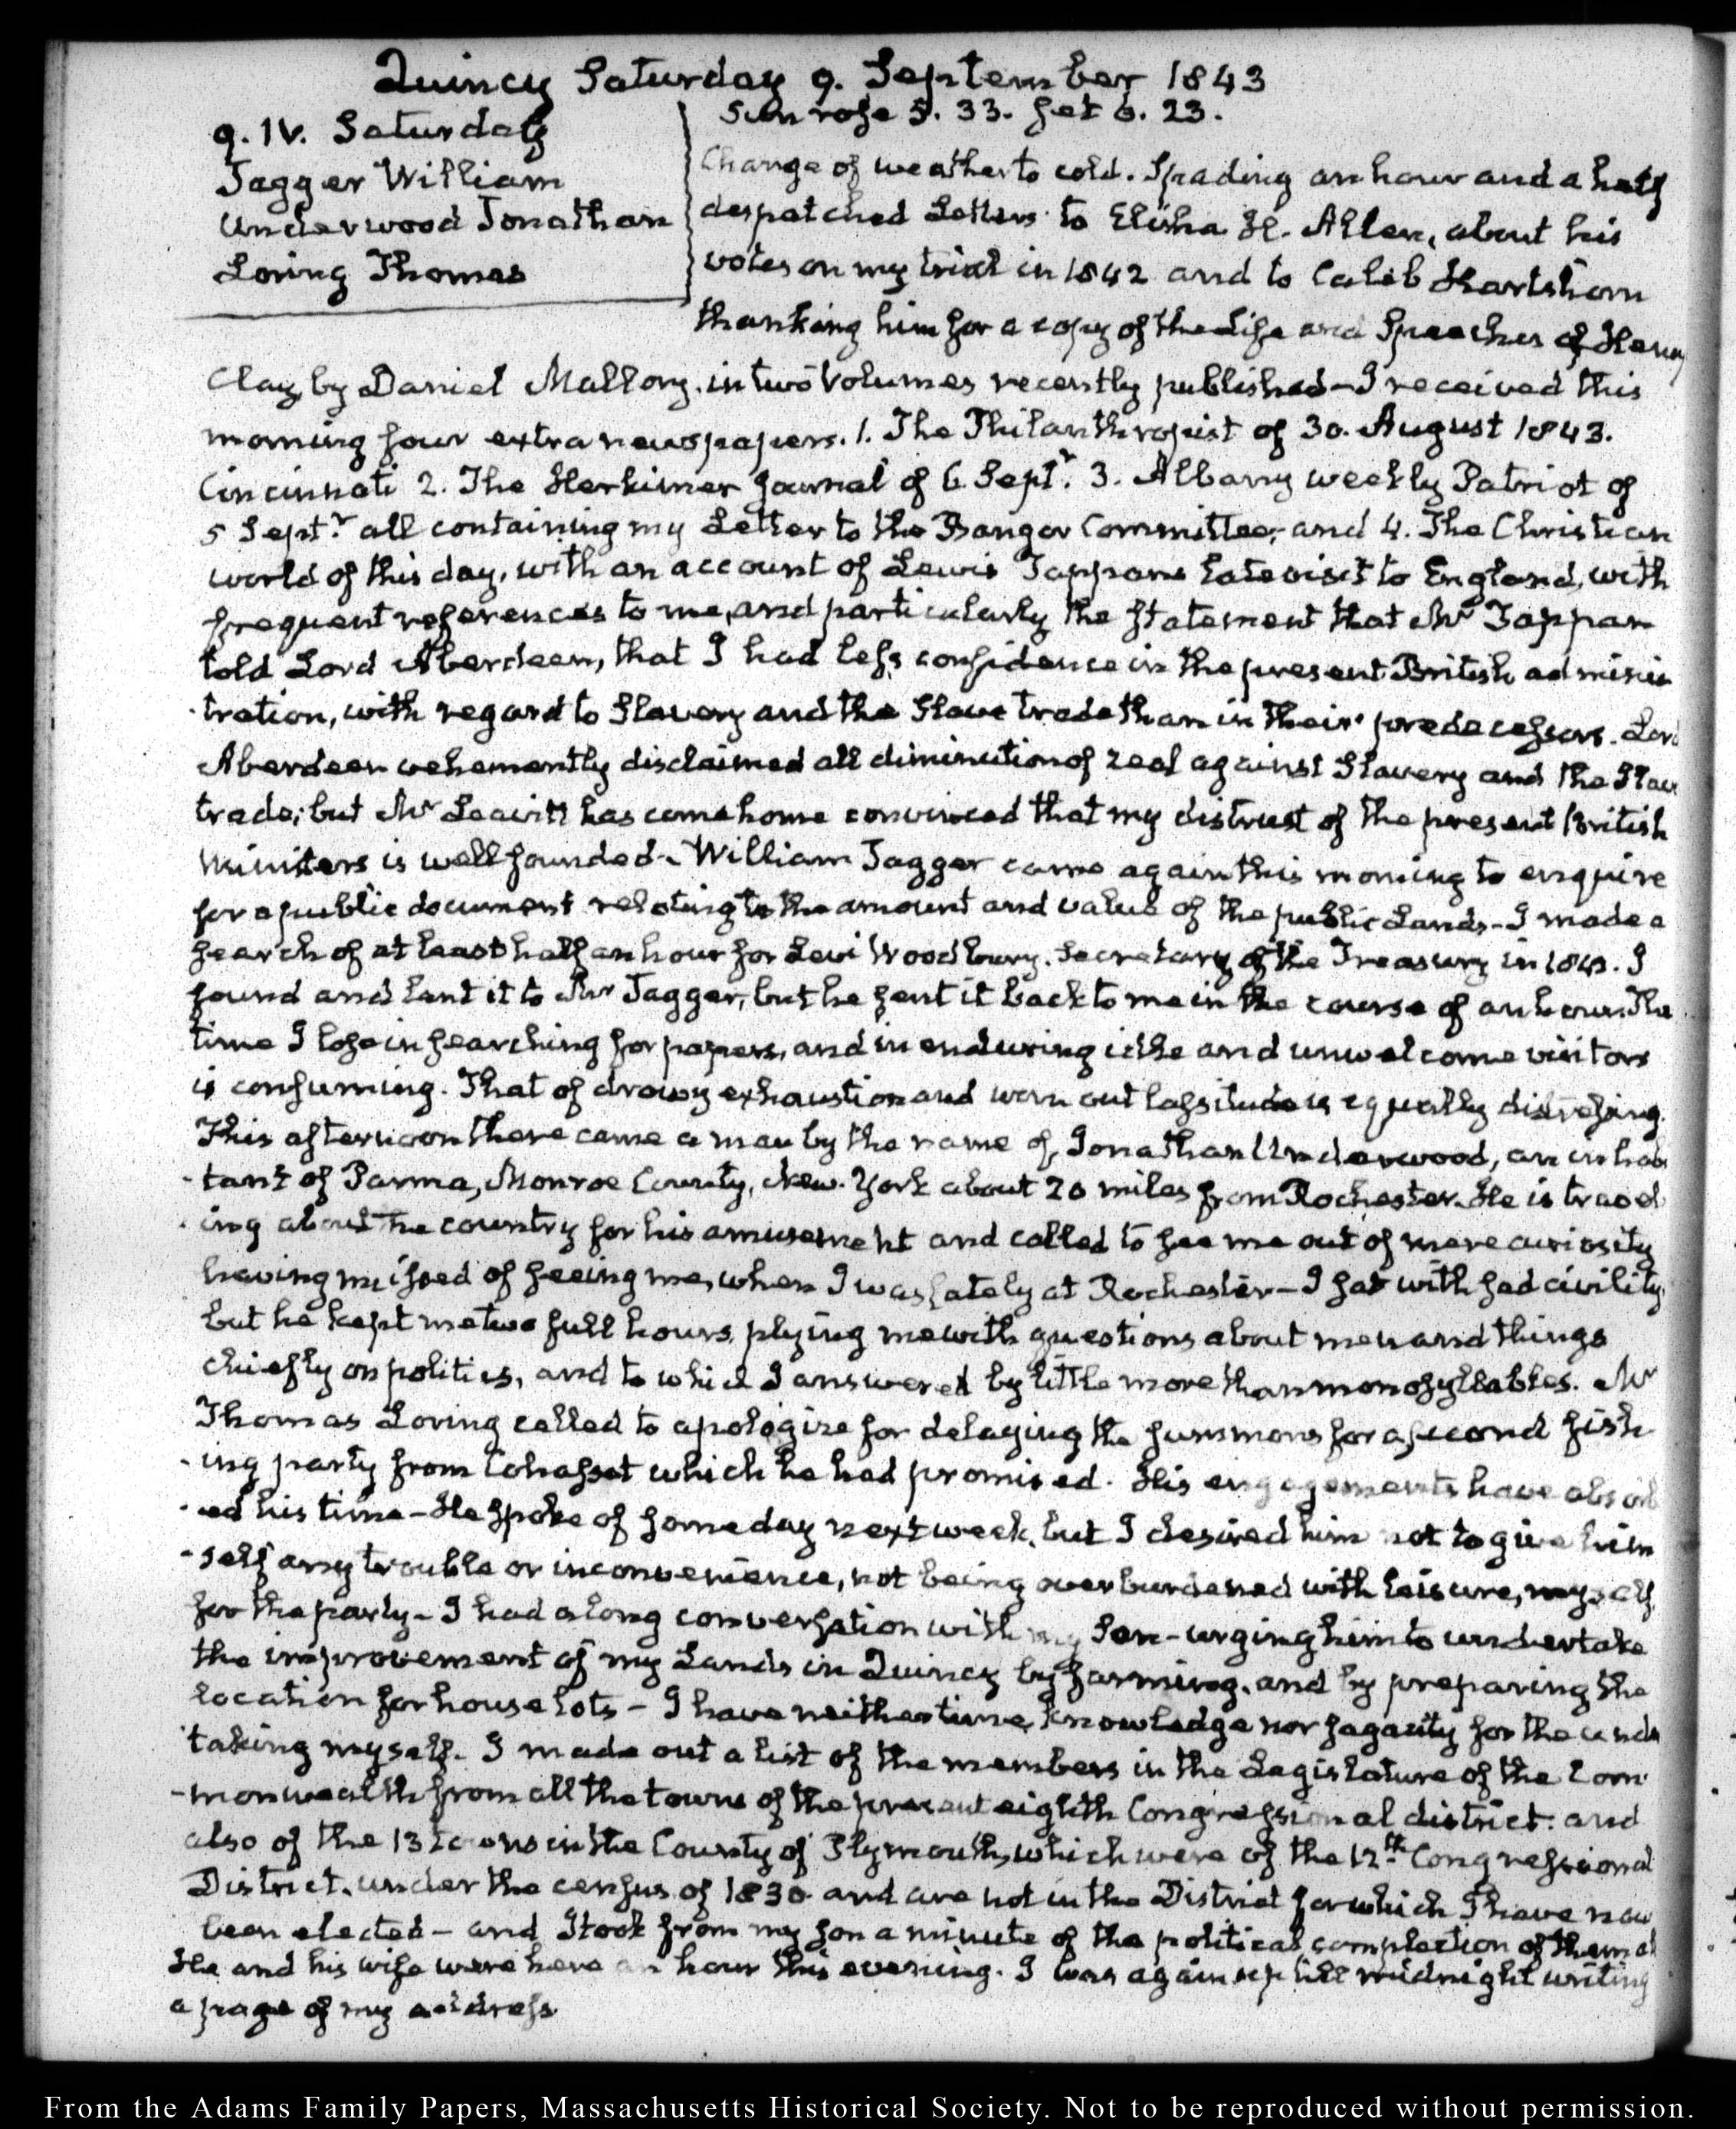 Quincy Saturday 9. September 1843
9. IV. Saturday
Jagger William
Underwood Jonathan
Loring Thomas
Sun rose 5. 33. set 6. 23.
Change of weather to cold. Spading an hour and a half
despatched Letters to Elisha H. Allen, about his
votes on my trial in 1842 and to Caleb Hartshorn
thanking him for a copy of the Life and Speeches of Henry
Clay, by Daniel Mallory, in two Volumes recently published – I received this
morning four extra newspapers. 1. The Philanthropist of 30. August 1843.
Cincinnati 2. The Herkimer Journal of 6 Septr. 3. Albany weekly Patriot of
5 Septr. all containing my Letter to the Bangor Committee, and 4. The Christian
world of this day, with an account of Lewis Tappans late visit to England, with
frequent references to me, and particularly the statement that Mr Tappan
told Lord Aberdeen, that I had less confidence in the present British adminis
-tration, with regard to Slavery and the Slave trade than in their predecessors. Lord
Aberdeen vehemently disclaimed all diminution of zeal against Slavery and the Slave
trade; but Mr Leavitt has come home convinced that my distrust of the present British
Ministers is well founded – William Jagger came again this morning to enquire
for a public document relating to the amount and value of the public Lands – I made a
search of at least half an hour for Levi Woodbury. Secretary of the Treasury in 1840. I
found and lent it to Mr Jagger, but he sent it back to me in the course of an hour. The
time I lose in searching for papers, and in enduring idle and unwelcome visitors
is consuming. That of drowzy exhaustion and worn out lassitude is equally distressing.
This afternoon there came a man by the name of Jonathan Underwood, an inhabi
-tant of Parma, Monroe County, New-York about 20 miles from Rochester. He is travel
-ing about the country for his amusement and called to see me out of mere curiosity
having missed of seeing me, when I was lately at Rochester – I sat with sad civility
but he kept me two full hours, plying me with questions about men and things
chiefly on politics, and to which I answered by little more than monosyllables. Mr
Thomas Loring called to apologize for delaying the summons for a second fish
-ing party from Cohasset which he had promised. His engagements have absorb
-ed his time – He spoke of some day next week, but I desired him not to give him
-self any trouble or inconvenience, not being overburdened with leisure, myself
for the party – I had a long conversation with my Son – urging him to undertake
the improvement of my Lands in Quincy by farming, and by preparing the
location for house lots – I have neither time, knowledge nor sagacity for the under
taking myself. I made out a list of the members in the Legislature of the Com
-monwealth from all the towns of the present eighth Congressional district: and
also of the 13 towns in the County of Plymouth, which were of the 12th Congressional
District, under the census of 1830 and are not in the District for which I have now
been elected – and I took from my son a minute of the political complection of them all
He and his wife were here an hour this evening. I was again up till midnight writing
a page of my address
From the Adams Family Papers, Massachusetts Historical Society. Not to be reproduced without permission.